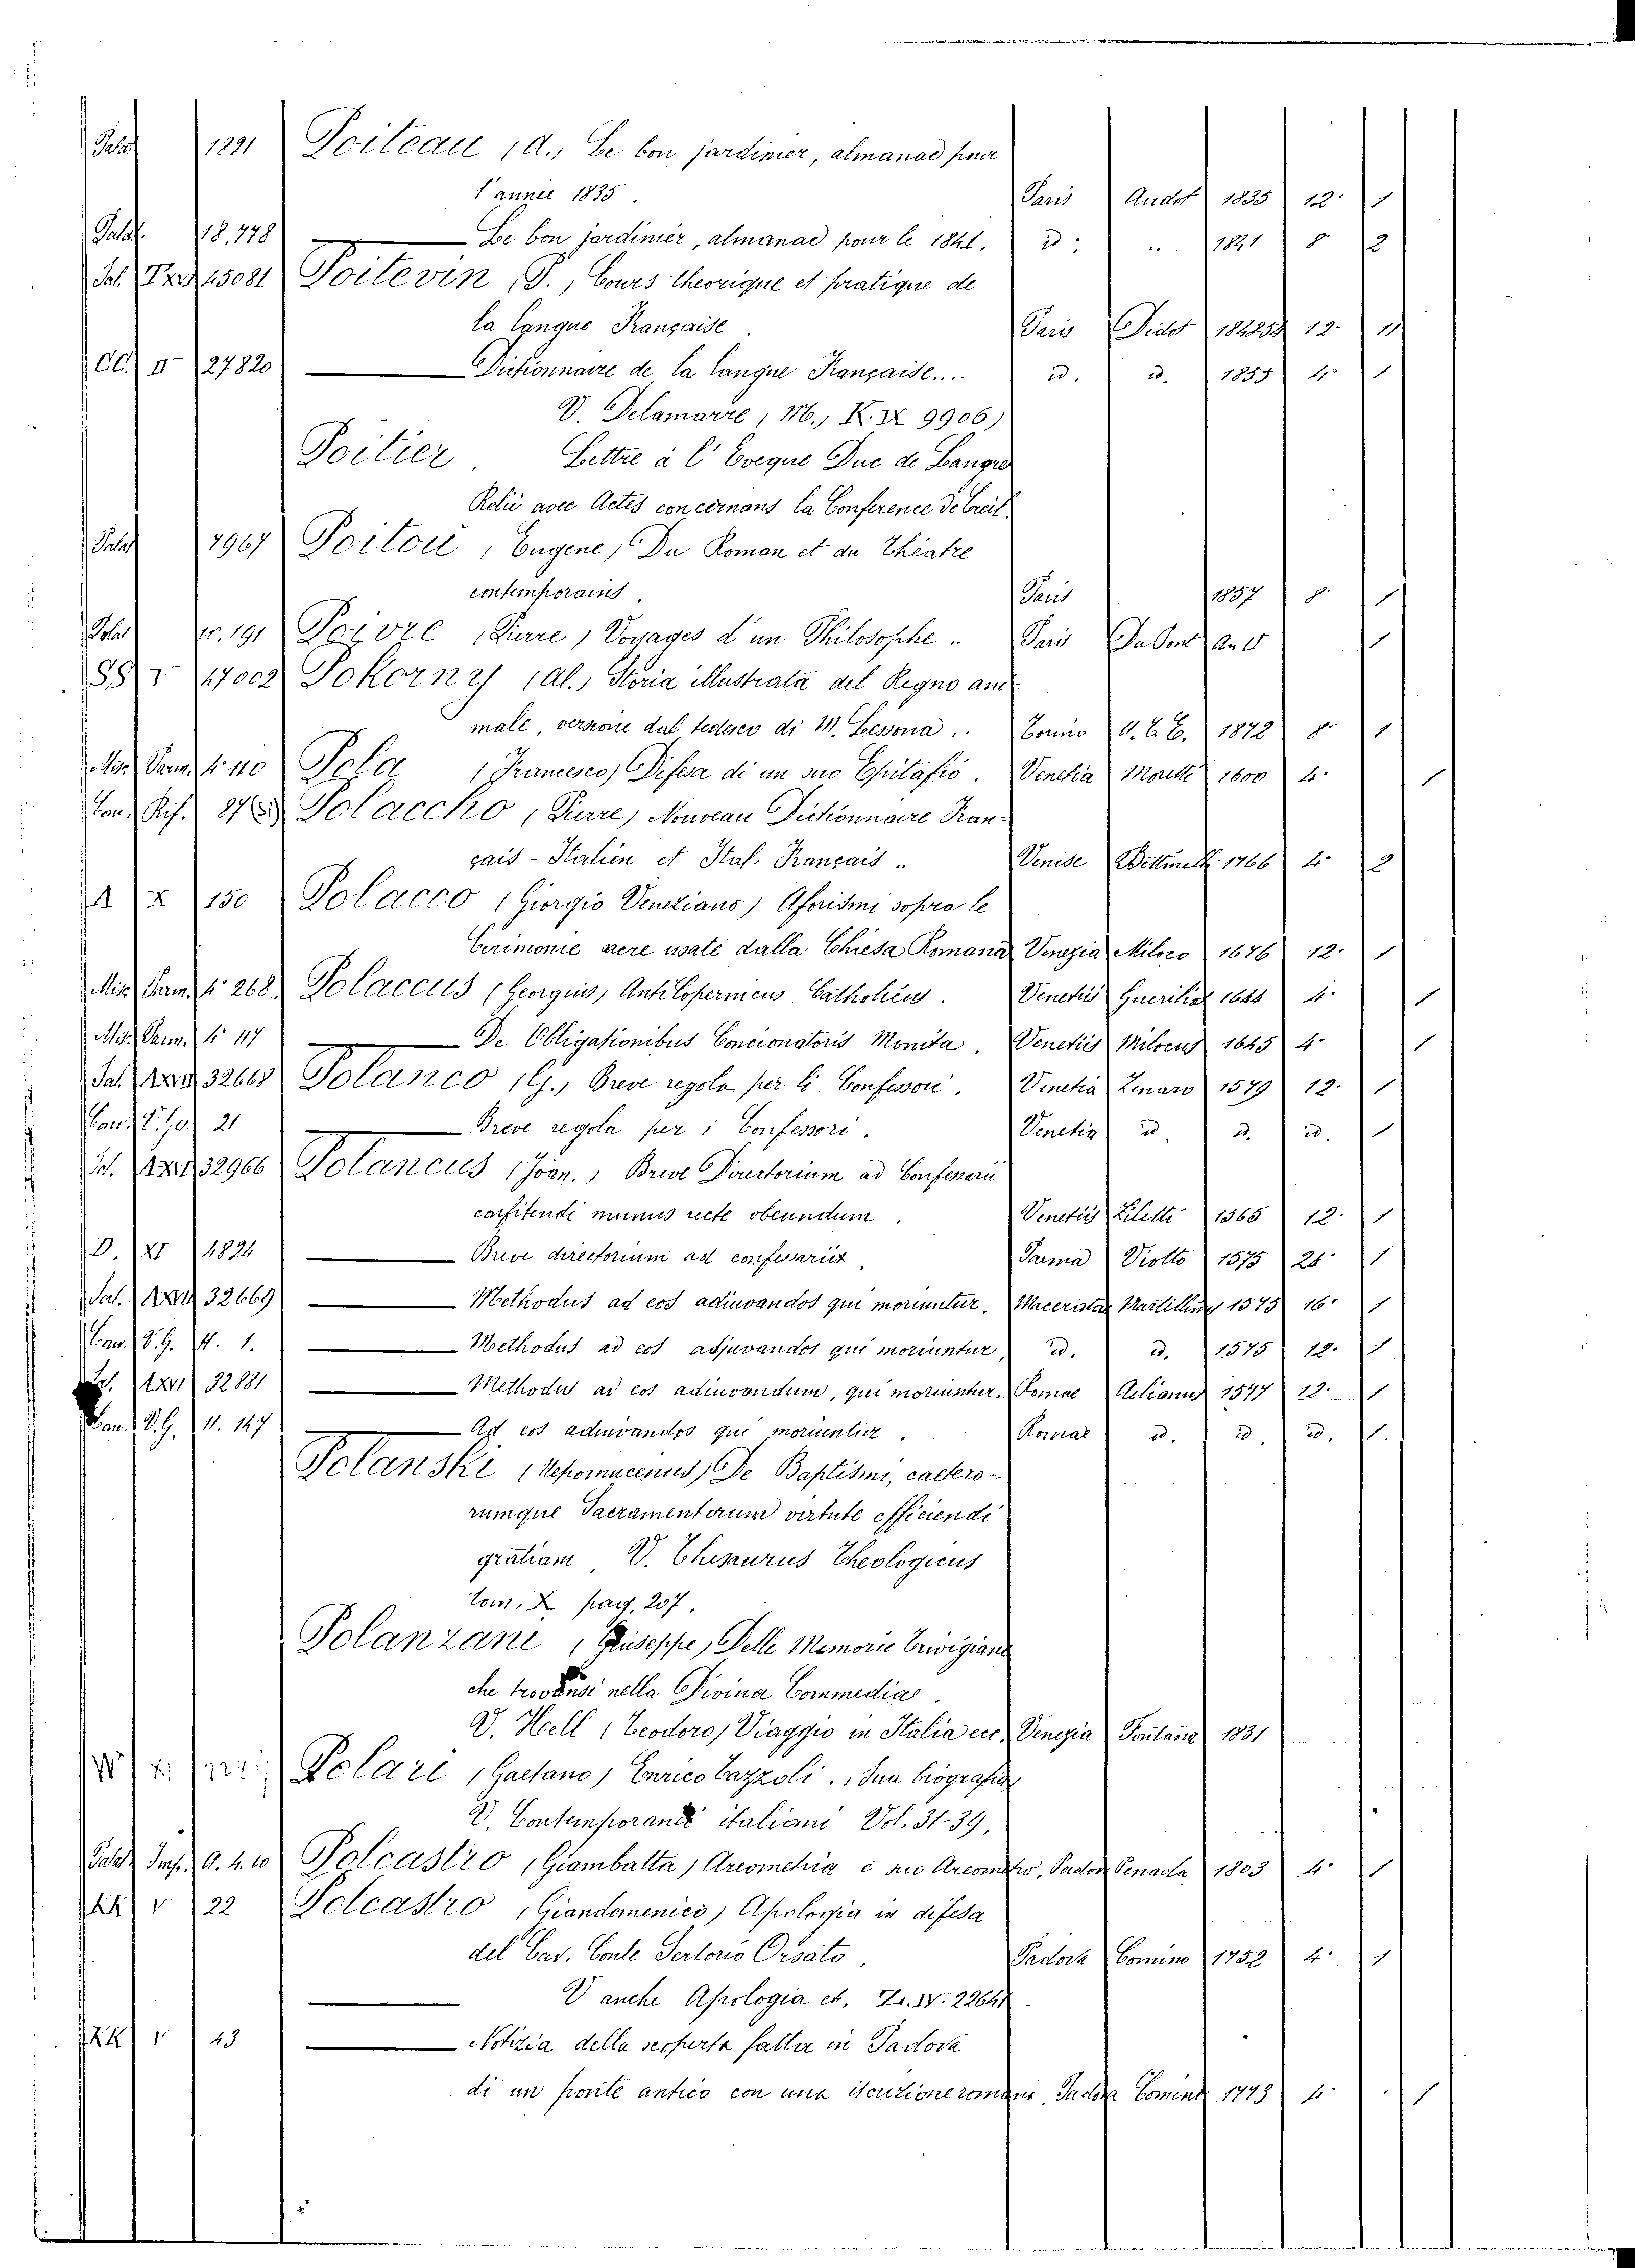 Palat 1821 Poiteau (A., Le bon jardinier, almanac pour
l'année 1835. Paris Audot 1835 12° 1
Palat. 18,778 — Le bon jardinier, almanac pour le 1841. id: .. 1841 8° 2
Sal. 15081 Poitevin (P., Cours theorique et pratique de
la langue Française. Paris Didot 12° 1
CC. IV 27820 — Dictionnaire de la langue Française.... id. id. 1855 4° 1
V. Delamarre (M., K. IX 9906)
Poitier. Lettre à l'Eveque Duc de Langre
Relié avec Actes concernans la Conference de Creil
Palat 7967 Poitou (Eugene) Du Roman et du Théatre
contemporains. Paris 1857 8° 1
Palat 191 Poivre (Pierre) Voyages d'un Philosophe.. Paris 1
SS V 17002 Pokorny (Al., Storia illustrata del Regno ani-
male, versione dal tedesco di M. Lessona.. Torino U. T. E. 1872 8° 1
Mis. Parm. 4° 110 Pola (Francesco) Difesa di un suo Epitafio. Venetia Moretti 1600 4° 1
Con. Rif. Polaccho (Pierre) Nouveau Dictionnaire Fran-
çais-Italien et Ital. Français.. Venise 1766 4° 2
A X 150 Polacco (Giorgio Veneziano) Aforismi sopra le
Cerimonie sacre usate dalla Chiesa Romana Venezia Miloco 1676 12° 1
Mis. Parm. 4° 268. Polaccus (Georgius) AntiCopernicus Catholicus. Venetiis Guerilios 1644 4° 1
Mis. Parm. 4° 117 — De Obligationibus Concionatoris Monita. Venetiis Milocus 1645 4° 1
Sal. 32668 Polanco (G., Breve regola per li Confessori. Venetia Zenaro 1579 12° 1
21 — Breve regola per i Confessori. Venetia id. id. id. 1
32966 Polancus (Joan., Breve Directorium ad Confessarii
confitendi munus recte obeundum. Venetiis Ziletti 1565 12° 1
D. XI 4824 — Breve directorium ad confessariis. Parma Viotto 1575 24° 1
Sal. 32669 — Methodus ad eos adiuvandos qui moriuntur. Maceratae Martellinus 1575 16° 1
Can. V. G. 11. 1. — Methodus ad eos adjuvandos qui moriuntur, id. id. 1575 12° 1
32881 — Methodus ad eos adiuvandum, qui moriuntur. Romae 1577 12° 1
V. G. 11. 147 — Ad eos adiuvandos qui moriuntur. Romae id. id. id. 1.
Polanski (Nepomucenus) De Baptismi, caetero-
rumque Sacramentorum virtute efficiendi
gratiam, V. Thesaurus Theologicus
tom. X pag. 207.
Polanzani (Giuseppe) Delle Memorie Trivigiane
che trovansi nella Divina Commedia.
V. Hell (Teodoro) Viaggio in Italia ecc. Venezia Fontana 1831
Polari (Gaetano) Enrico Cazzoli.. sua biografia
V. Contemporanei italiani Vol. 31-39.
Palat Imp. A. 4. 10 Polcastro (Giambatta) Areometria e suo Areometro. Padova Penada 1803 4° 1
V 22 Polcastro (Giandomenico) Apologia in difesa
del Cav. Conte Sertorio Orsato. Padova Comino 1752 4° 1
— V anche Apologia et.
V 43 — Notizia della scoperta fatta in Padova
di un ponte antico con una iscrizione romana. Padova Comino 1773 4° 1